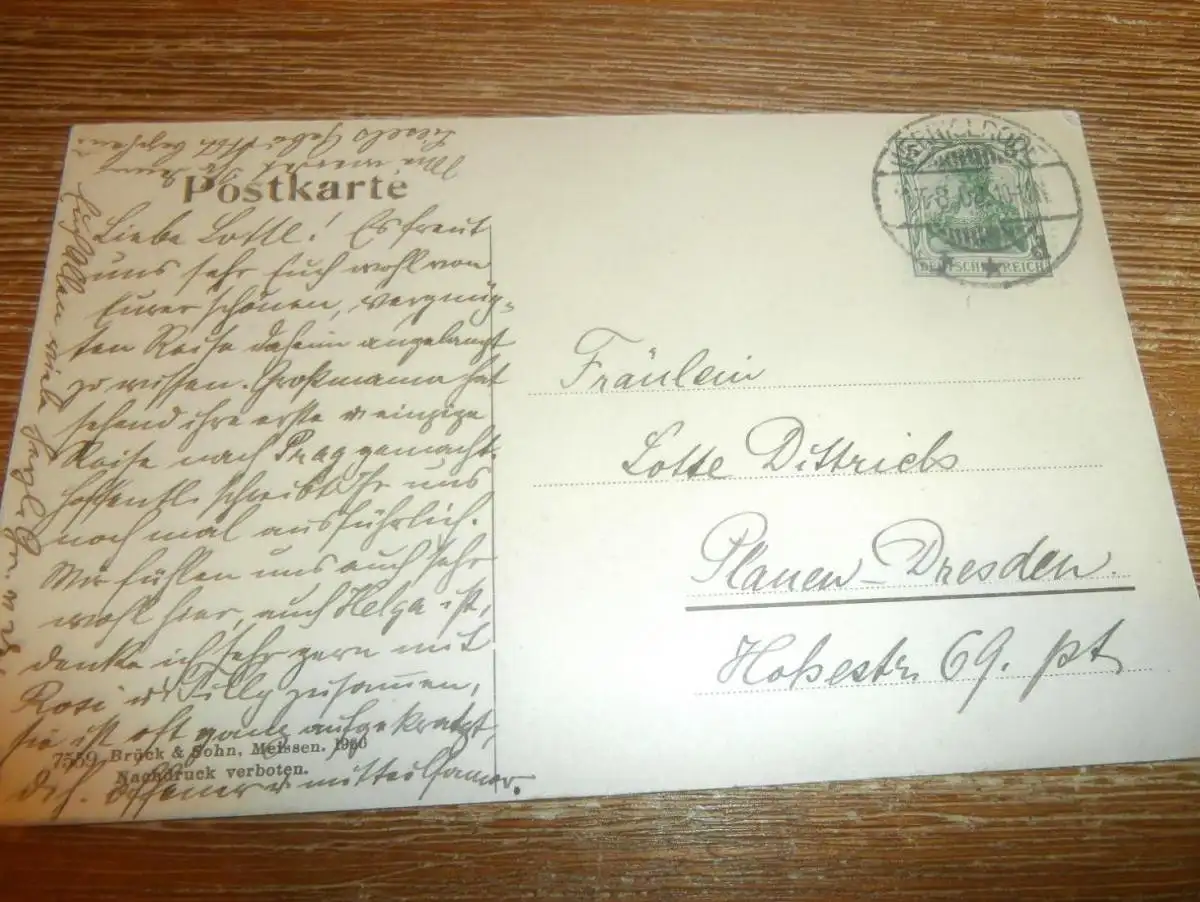 Postkarte
Liebe Lotte! Es freut
uns sehr Euch wohl von
Eurer schönen, vergnüg-
ten Reise daheim angelangt
zu wissen. Großmama hat
ihre erste u einzige
Reise nach Prag gemacht.
Hoffentl. schreibt Ihr uns
noch mal ausführlich.
Wir fühlen uns auch sehr
wohl hier, auch Helga ist,
denke ich sehr gern mit
Rosi u Tilly zusammen,
sie ist oft ganz aufgekratzt,
d. h. offener u mitteilsamer.
Euch Allen viele herzl.
7559 Brück & Sohn, Meissen. 1906
Nachdruck verboten.
DEUTSCHES REICH
Fräulein
Lotte Dittrich
Plauen-Dresden.
Hohestr. 69. pt